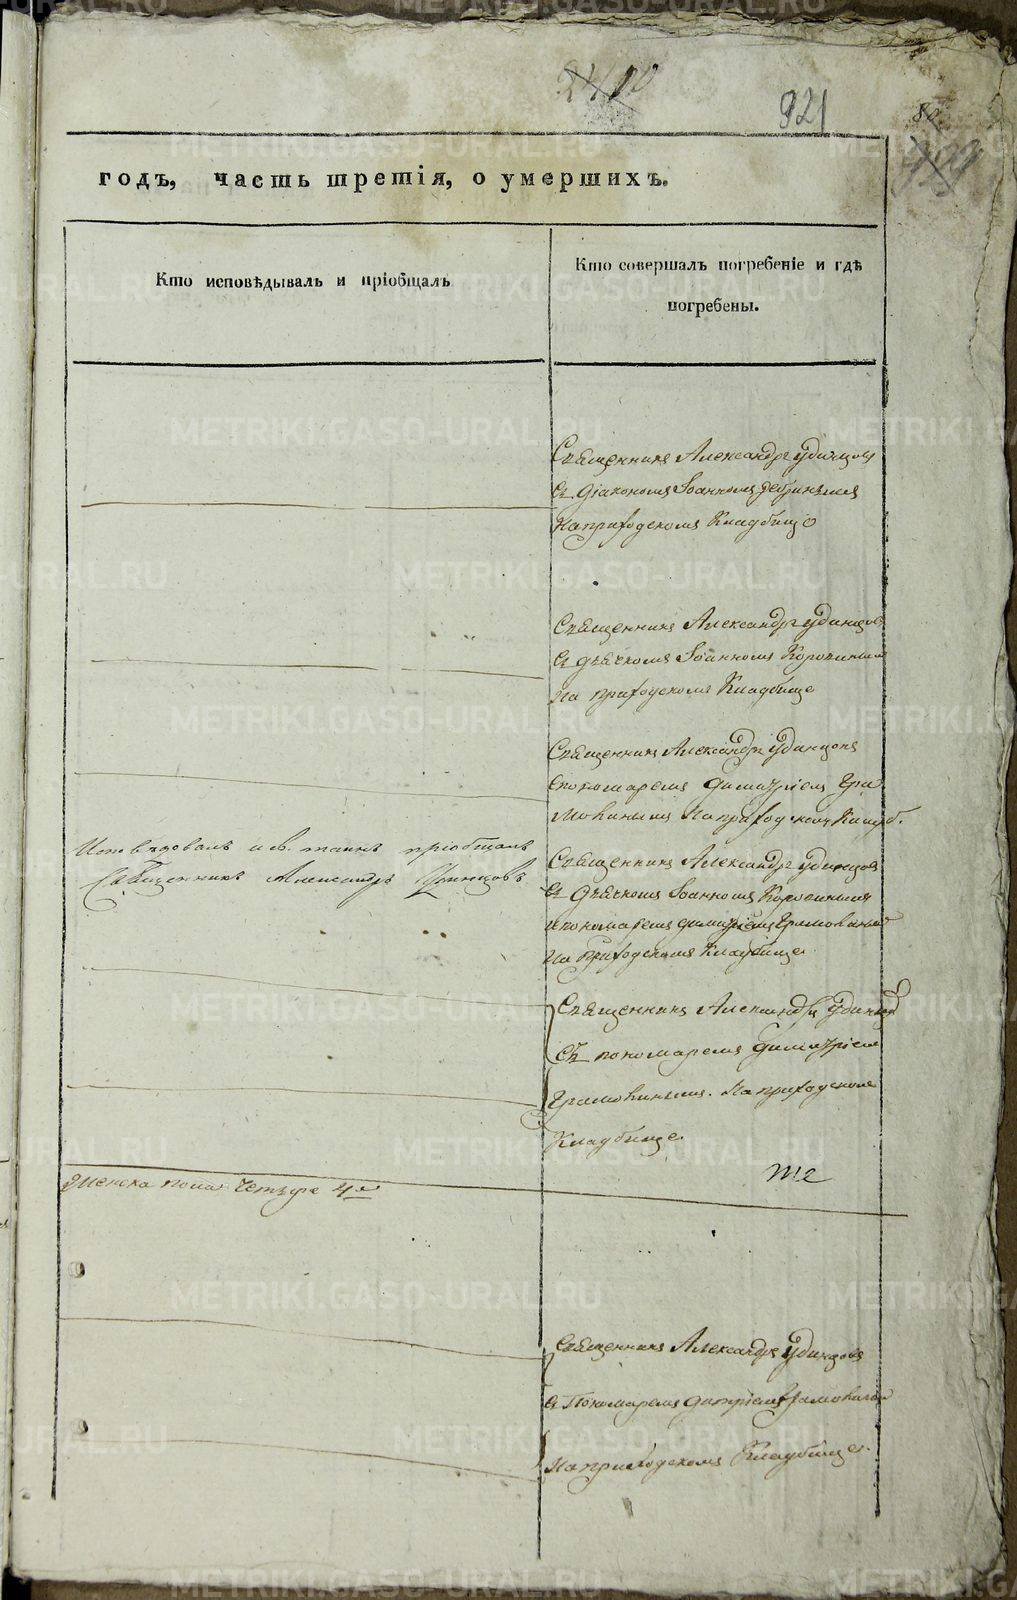 2400
921
80
годъ, часть третія, о умершихъ.
Кто исповѣдывалъ и пріобщалъ
Кто совершалъ погребеніе и гдѣ
погребены.
Священникъ Александръ Удинцовъ
съ діакономъ Іоанномъ
На приходскомъ Кладбищѣ
Священникъ Александръ Удинцовъ
съ дьячкомъ Іоанномъ Коровинымъ
На приходскомъ Кладбище
Священникъ Александръ Удинцовъ
спономаремъ Димитріемъ
На приходскомъ Кладб.
Исповѣдовалъ и св. таинъ пріобщалъ
Священникъ Александръ Удинцовъ
Священникъ Александръ Удинцовъ
съ Дьячкомъ Іоанномъ Коровинымъ
ипономаремъ Димитріемъ
На Приходскомъ Кладбище
Священникъ Александръ Удинцовъ
Съ пономаремъ Димитріемъ
На приходскомъ
Кладбище
Женска пола Четыре 4
те
Священникъ Александръ Удинцовъ
съ Пономаремъ Димитріемъ
На приходскомъ Кладбище.
METRIKI.GASO-URAL.RU